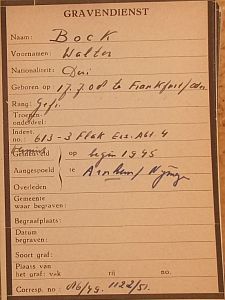 GRAVENDIENST
Naam: Bock
Voornamen: Walter
Nationaliteit: Dui
Geboren op 17.7.08 te Frankfurt/Oder
Rang: Gefr.
Troepen-
onderdeel:
Indent.
no.: 613 - 3 Flak Ers. Abt. 4
op begin 1945
Aangespoeld te Arnhem/
Overleden
Gemeente
waar begraven:
Begraafplaats:
Datum
begraven:
Soort graf:
Plaats van
het graf: vak rij no.
Corresp. no: 1122/51.